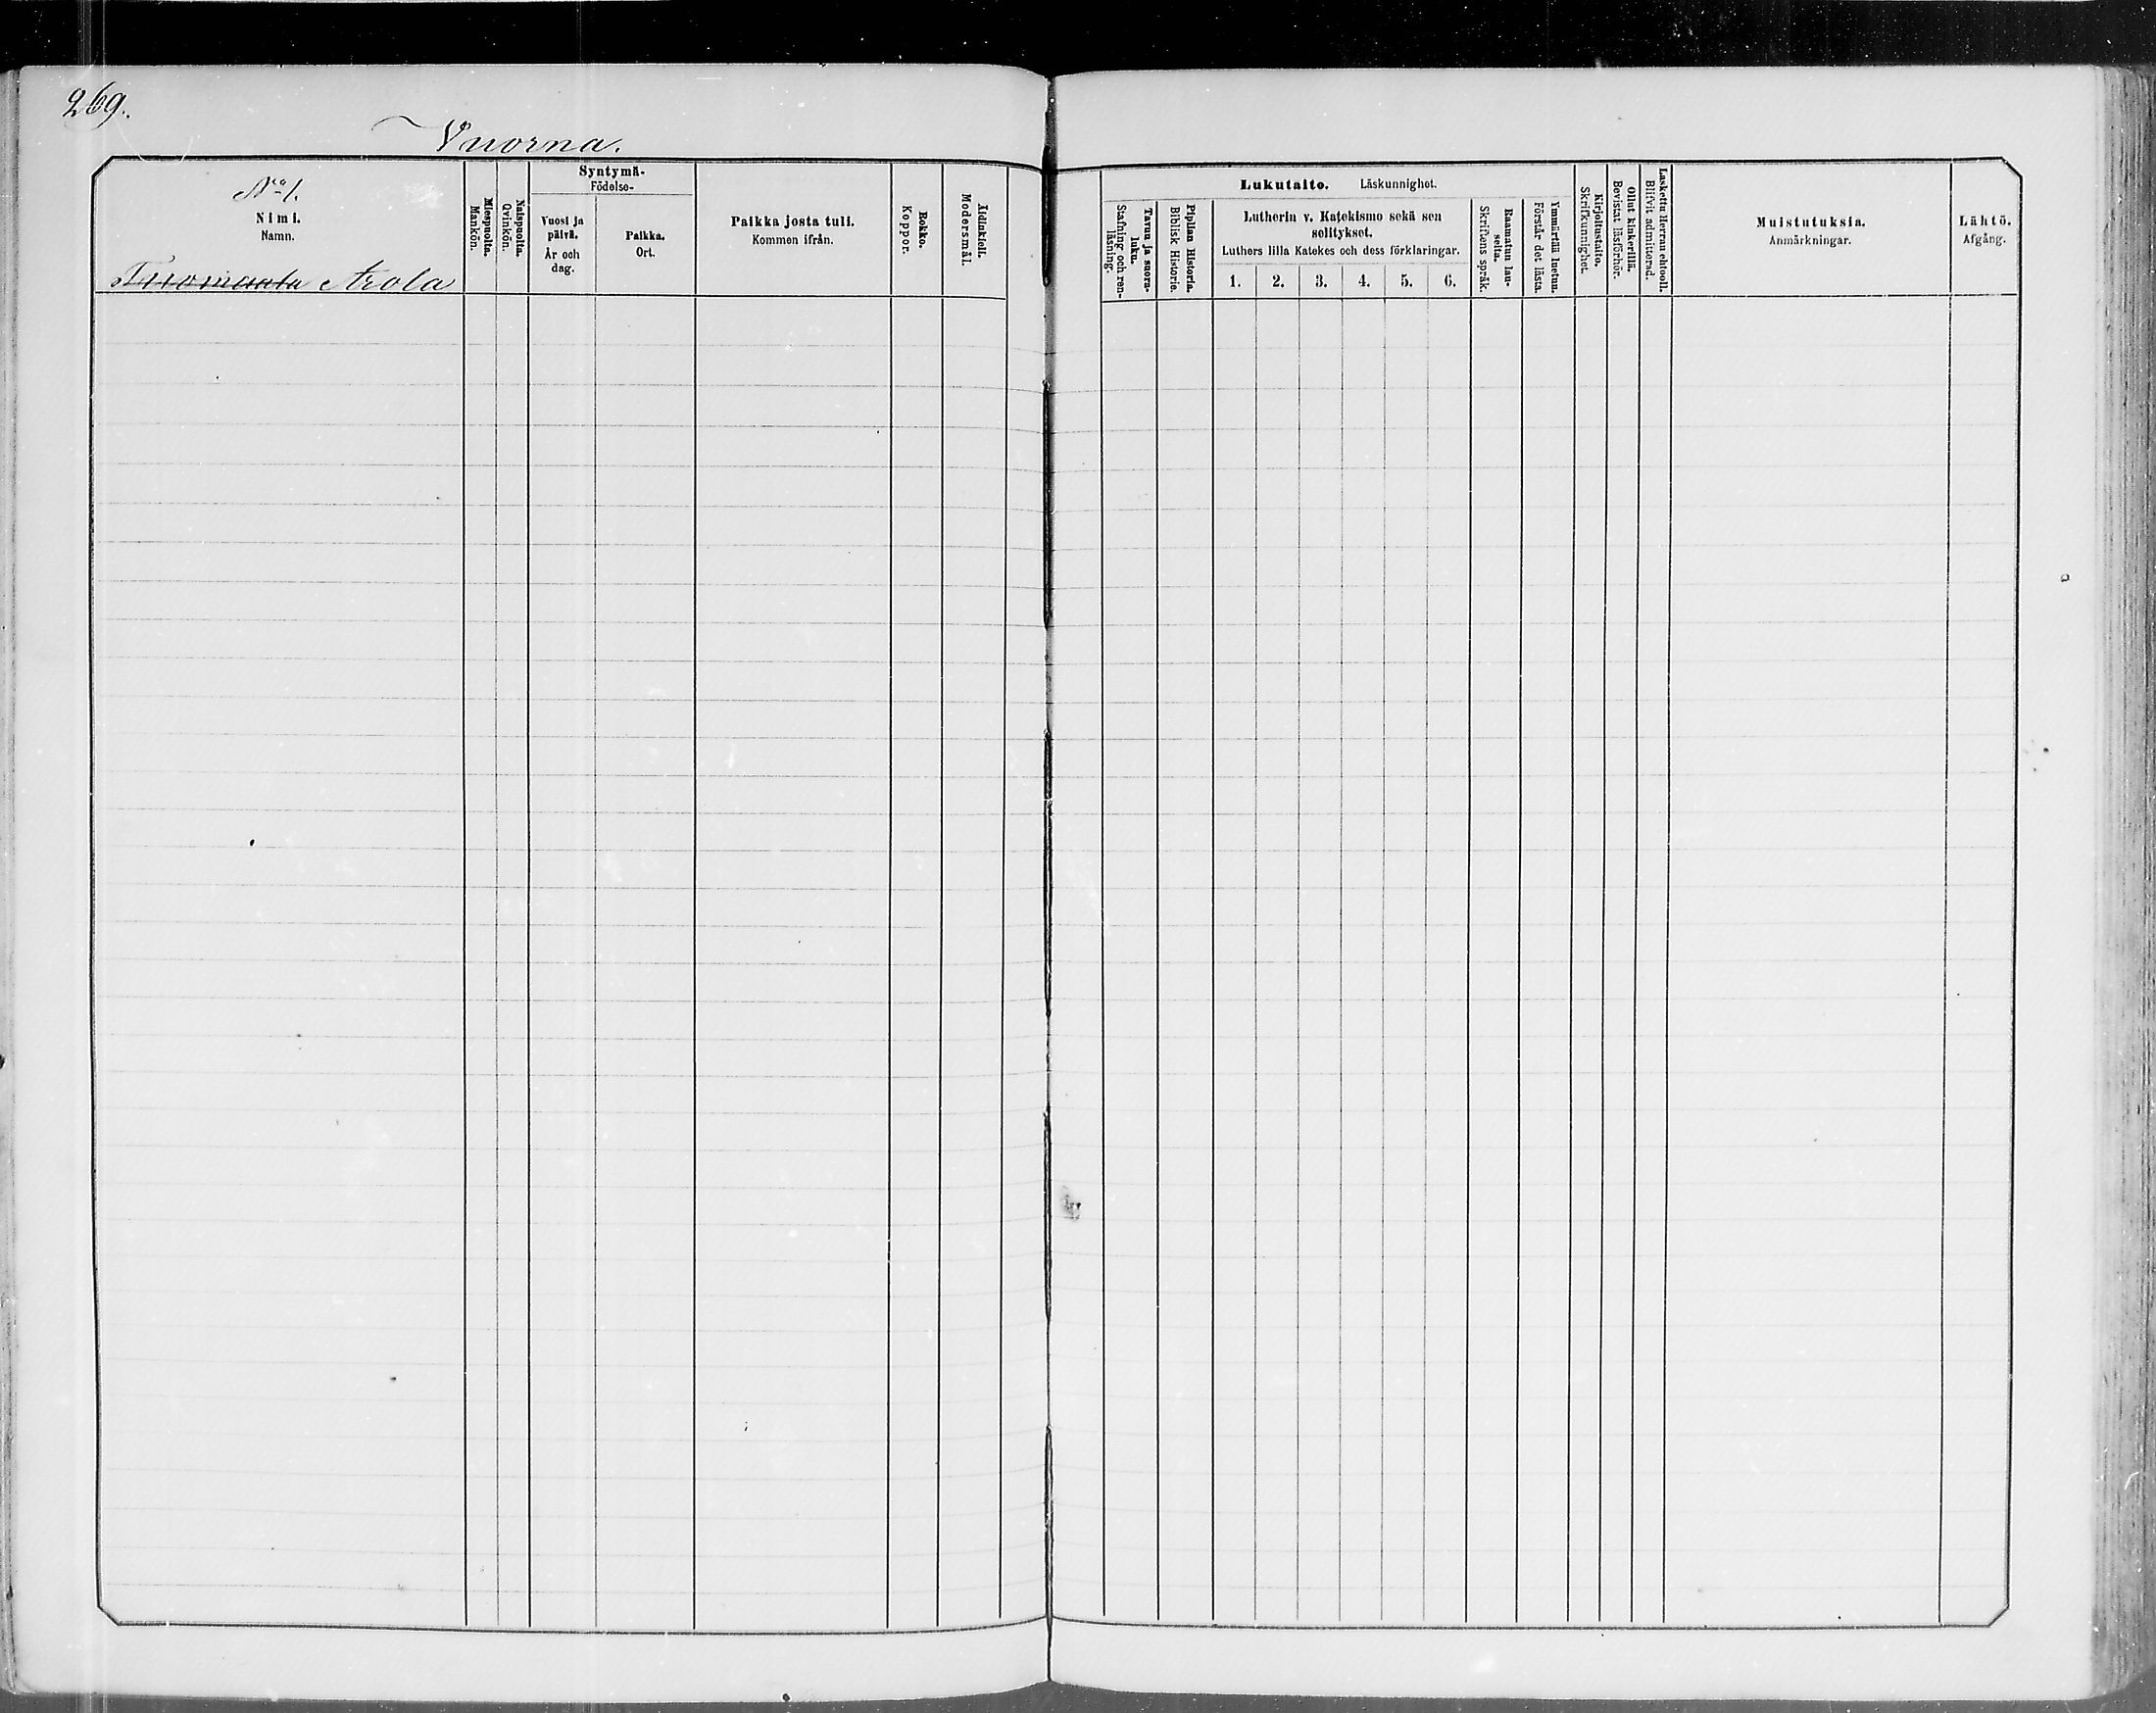 269.
Vuorna.
No 1.
Nimi.
Namn.
Tuomaala Arola
Miespuolta.
Mankön.
Naispuolta.
Qvinkön.
Syntymä-
Födelse-
Vuosi ja
päivä.
År och
dag.
Paikka.
Ort.
Paikka josta tuli.
Kommen ifrån.
Rokko.
Koppor.
Äidinkieli.
Modersmål.
Lukutaito. Läskunnighet.
Tavuu ja suora-
luku.
Stafning och ren-
läsning.
Piplian Historia.
Biblisk Historie.
Lutherin v. Katekismo sekä sen
selitykset.
Luthers lilla Katekes och dess förklaringar.
1. 2. 3. 4. 5. 6.
Raamatun lau-
seita.
Skriftens språk.
Ymmärtää luetun.
Förstår det lästa.
Kirjoitustaito.
Skrifkunnighet.
Ollut kinkerillä.
Bevistat läsförhör.
Laskettu Herran ehtooll.
Blifvit admitterad.
Muistutuksia.
Anmärkningar.
Lähtö.
Afgång.